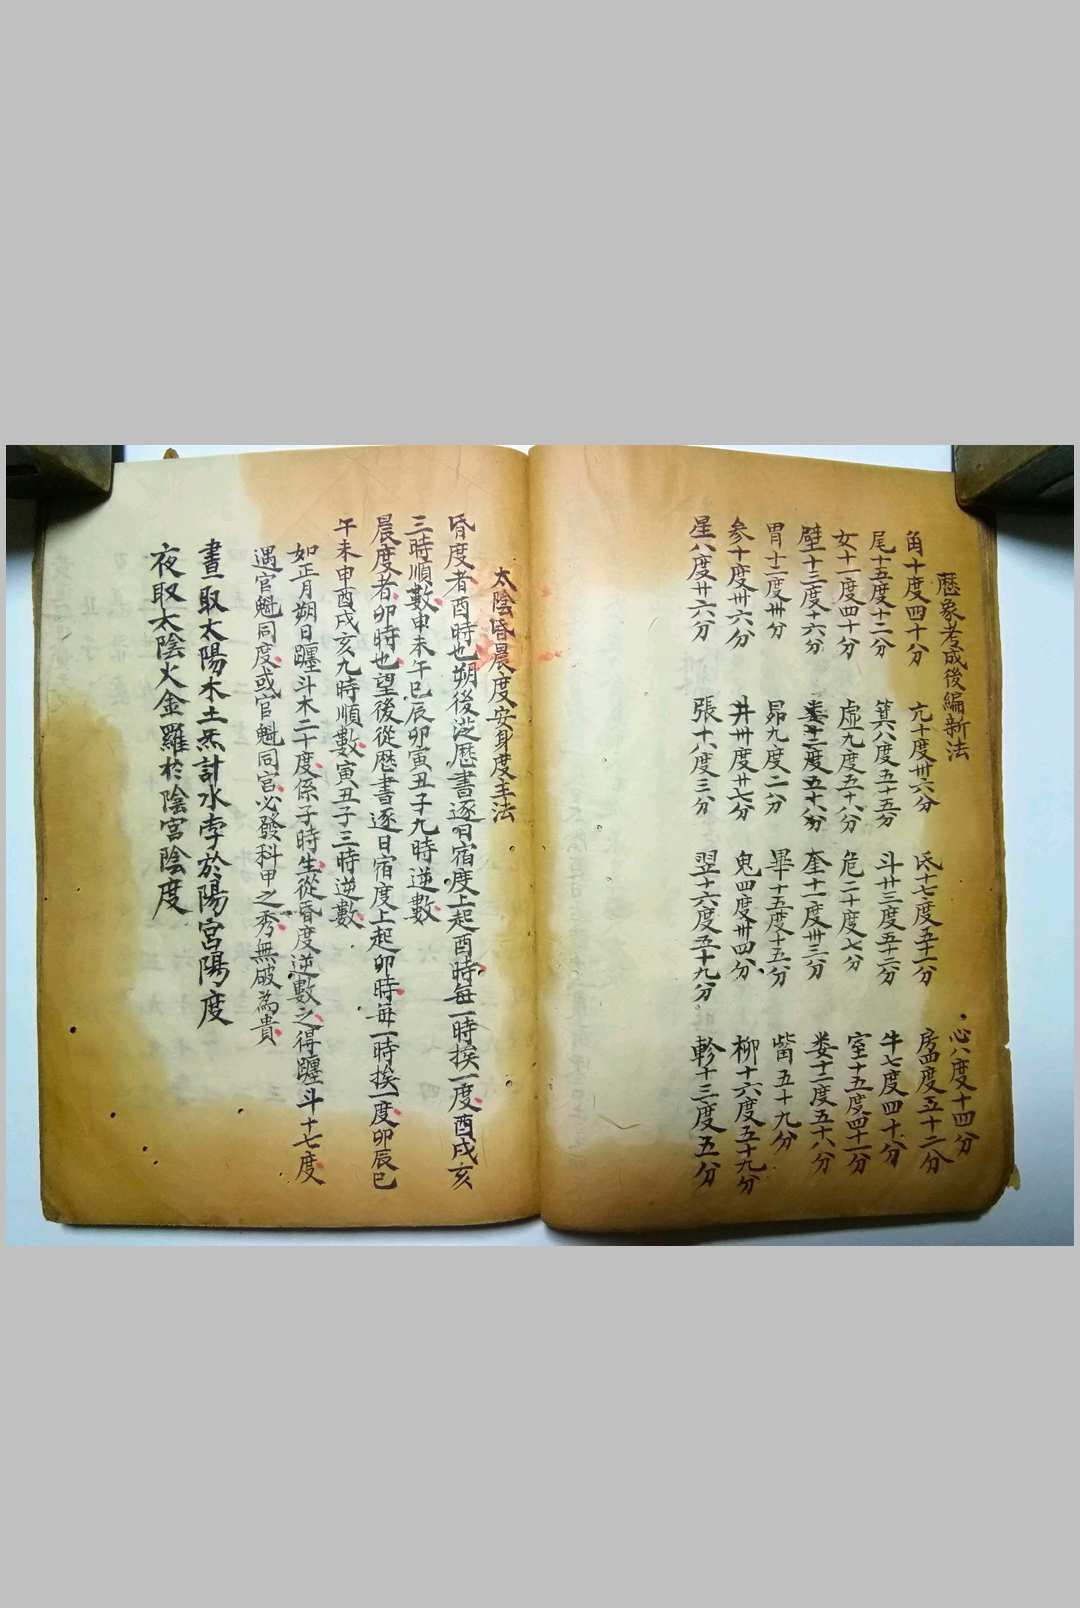 歷象考成後編新法
角十度四十分 亢十度卅六分 氐十七度五十一分 房四度五十二分 心八度十四分
尾十五度十二分 箕八度五十五分 斗廿三度五十二分 牛七度四十分
女十一度四十分 虛九度五十八分 危二十度七分 室十五度四十一分
壁十三度十六分 婁十二度五十八分 奎十一度卅三分 婁十二度五十八分
胃十二度卅分 昴九度二分 畢十五度十五分 觜五十九分
參十度卅六分 井卅度廿七分 鬼四度卅四分 柳十六度五十九分
星八度廿六分 張十八度三分 翌十六度五十九分 軫十三度五分
太陰昏晨度安身度主法
昏度者酉時也朔後從歷書逐日宿度上起酉時每一時挨一度酉戌亥
三時順數申未午巳辰卯寅丑子九時逆數
晨度者卯時也望後從歷書逐日宿度上起卯時每一時挨一度卯辰巳
午未申酉戌亥九時順數寅丑子三時逆數
如正月朔日躔斗木二十度係子時生從昏度逆數之得躔斗十七度
遇官魁同度或官魁同宮必發科甲之秀無破為貴
晝取太陽木土炁計水孛於陽宮陽度
夜取太陰火金羅於陰宮陰度